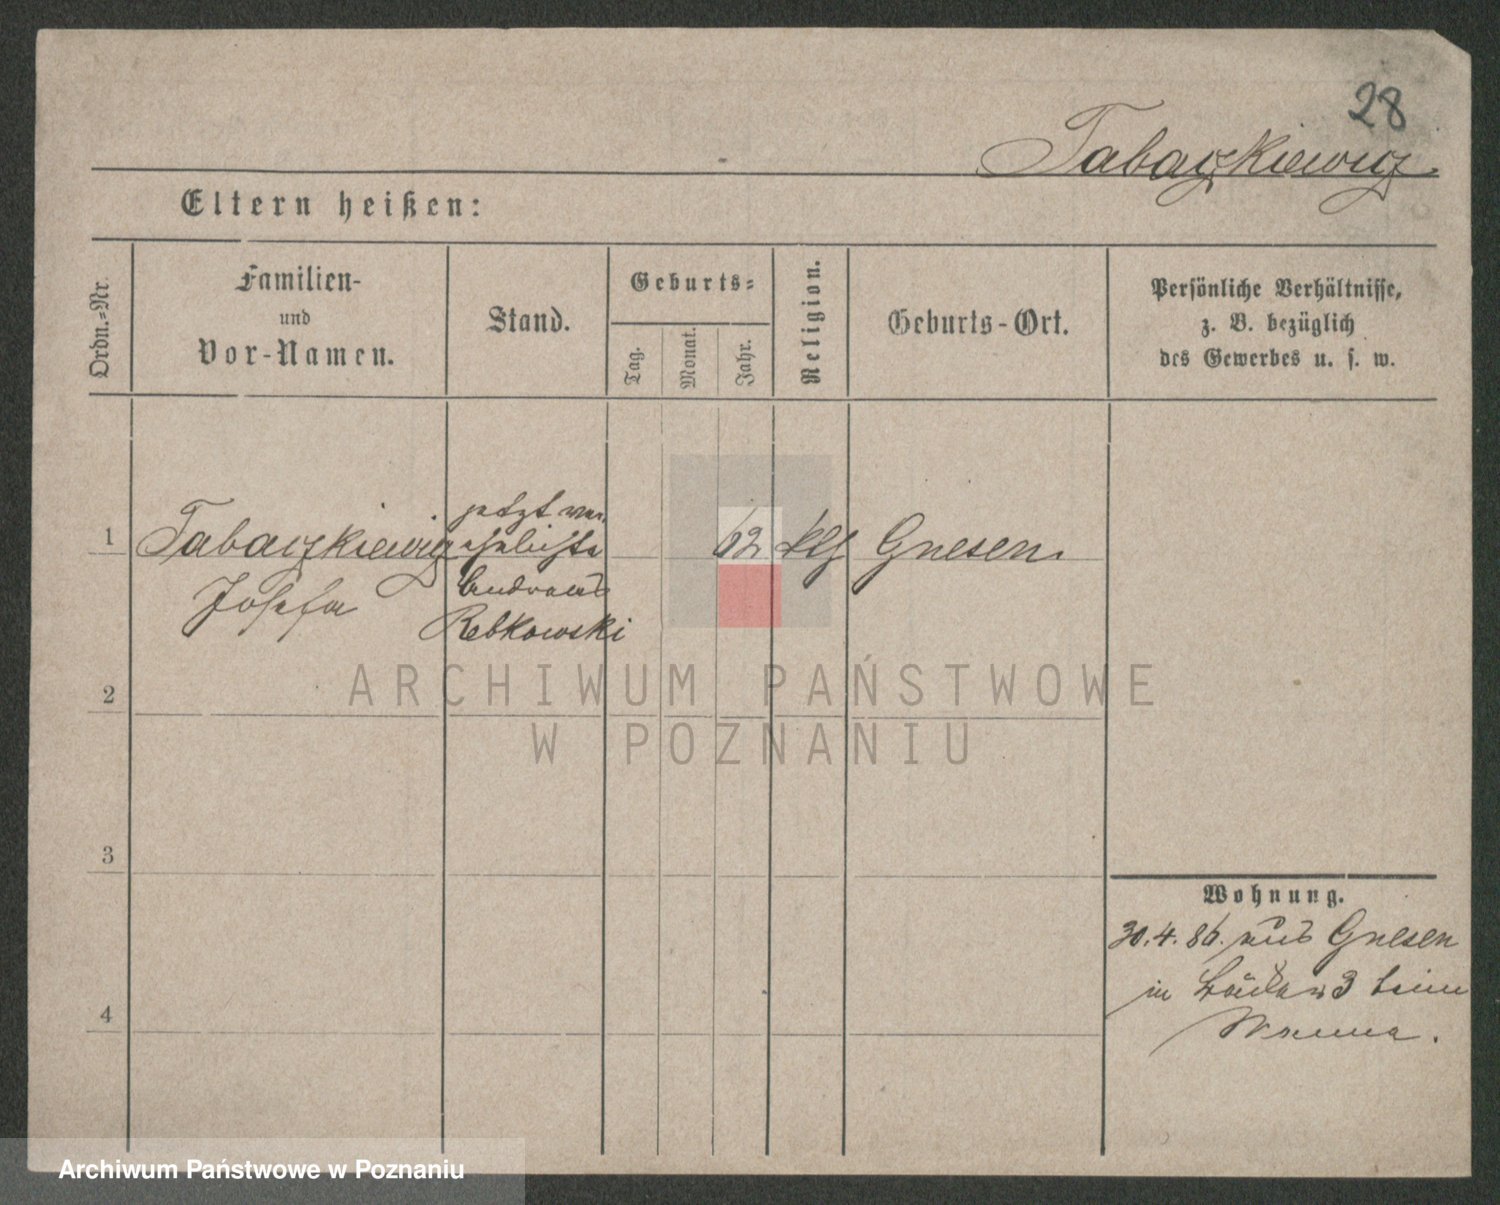 28
Tabaczkiewicz
Eltern heißen:
Ordn.-Nr.
Familien-
und
Vor-Namen.
Stand.
Geburts-
Tag.
Monat.
Jahr.
Religion.
Geburts-Ort.
Persönliche Verhältnisse,
z. B. bezüglich
des Gewerbes u. s. w.
1
Tabaczkiewicz
Josefa
jetzt ver-
ehelichte
Rebkowski
62
Gnesen.
2
3
4
Wohnung.
30.4.86. aus Gnesen
in 3 beim
ARCHIWUM PAŃSTWOWE
W POZNANIU
Archiwum Państwowe w Poznaniu